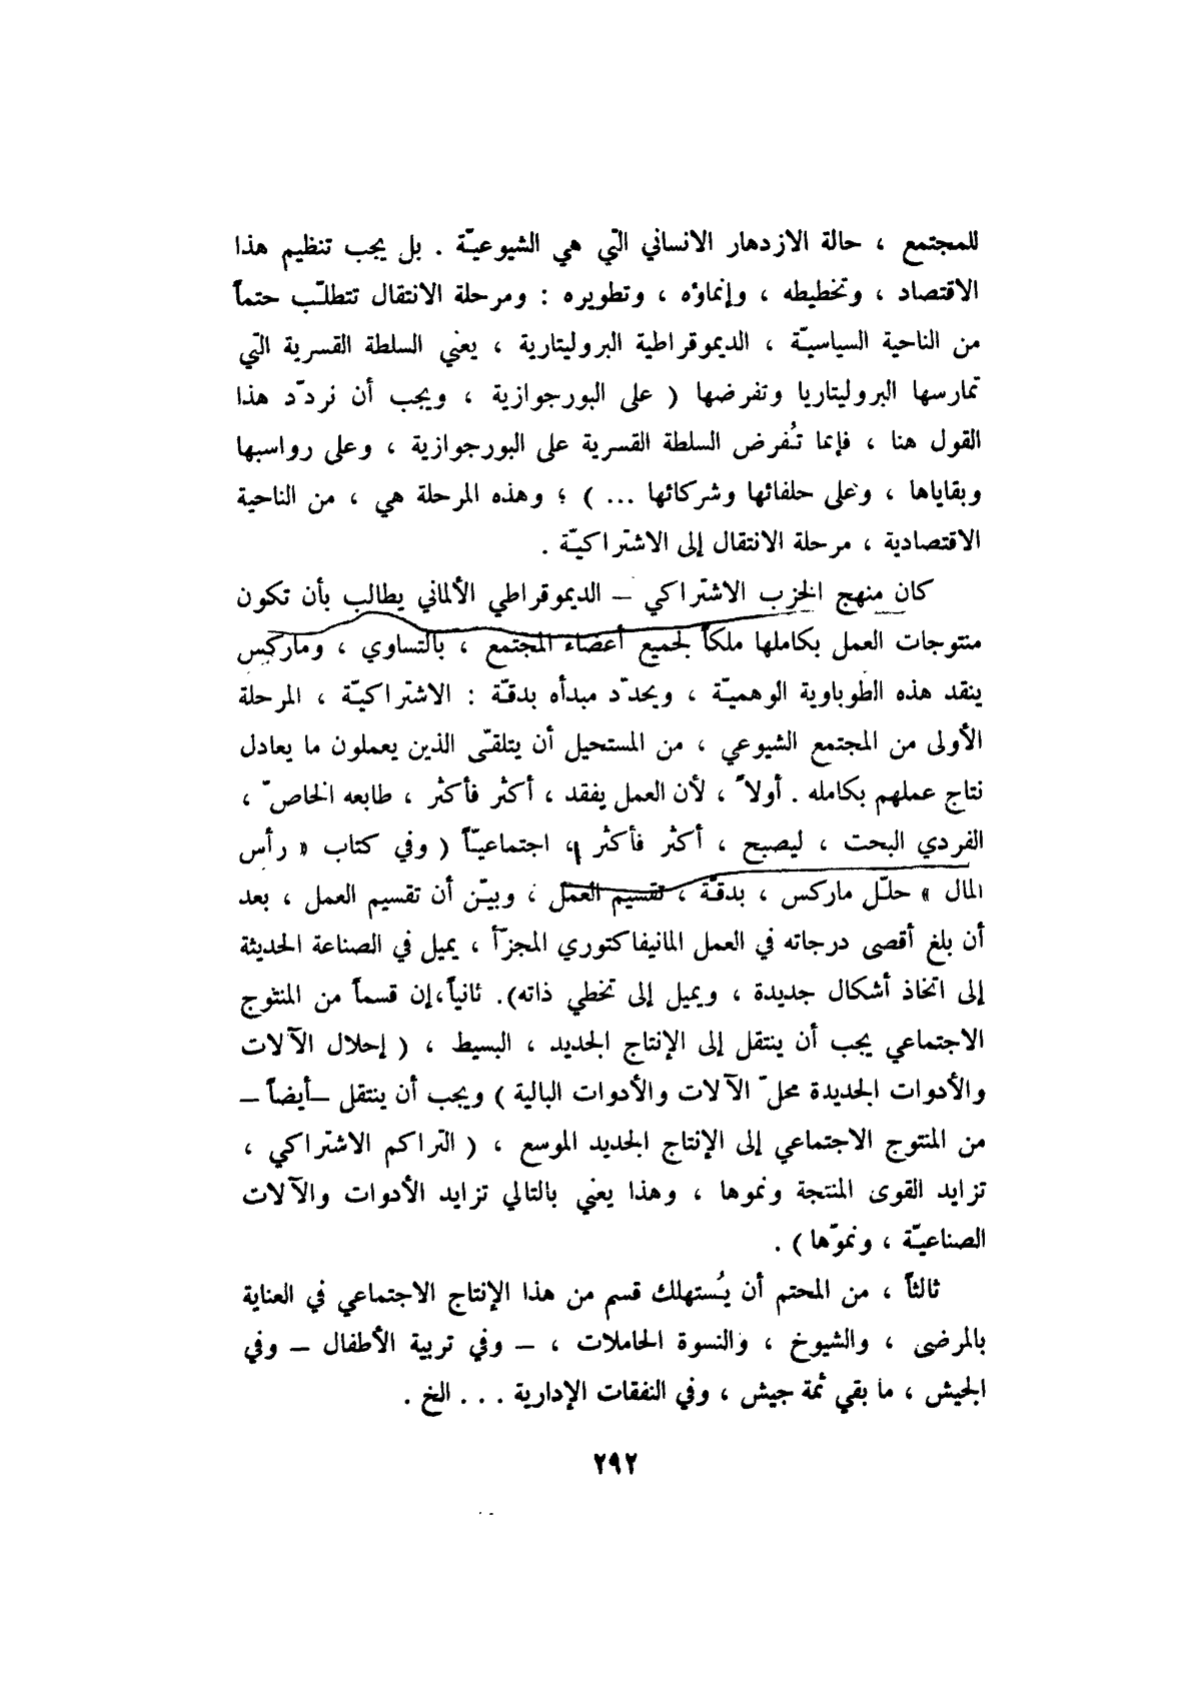 للمجتمع ، حالة الازدهار الانساني التّي هي الشيوعيّة . بل يجب تنظيم هذا
الاقتصاد ، وتخطيطه ، وإنماؤه ، وتطويره : ومرحلة الانتقال تتطلّب حتماً
من الناحية السياسيّة ، الديموقراطية البروليتارية ، يعني السلطة القسرية التّي
تمارسها البروليتاريا وتفرضها ( على البورجوازية ، ويجب أن نردّد هذا
القول هنا ، فإنما تُفرض السلطة القسرية على البورجوازية ، وعلى رواسبها
وبقاياها ، وعلى حلفائها وشركائها ... ) ؛ وهذه المرحلة هي ، من الناحية
الاقتصادية ، مرحلة الانتقال إلى الاشتراكيّة .
كان منهج الحزب الاشتراكي – الديموقراطي الألماني يطالب بأن تكون
منتوجات العمل بكاملها ملكاً لجميع أعضاء المجتمع ، بالتساوي ، وماركس
ينقد هذه الطوباوية الوهميّة ، ويحدّد مبدأه بدقّة : الاشتراكيّة ، المرحلة
الأولى من المجتمع الشيوعي ، من المستحيل أن يتلقّى الذين يعملون ما يعادل
نتاج عملهم بكامله . أولاً ، لأن العمل يفقد ، أكثر فأكثر ، طابعه الخاصّ ،
الفردي البحت ، ليصبح ، أكثر فأكثر ، اجتماعيّاً ( وفي كتاب « رأس
المال » حلّل ماركس ، بدقّة ، تقسيم العمل ، وبيّن أن تقسيم العمل ، بعد
أن بلغ أقصى درجاته في العمل المانيفاكتوري المجزّأ ، يميل في الصناعة الحديثة
إلى اتخاذ أشكال جديدة ، ويميل إلى تخطي ذاته). ثانياً،إن قسماً من المنتوج
الاجتماعي يجب أن ينتقل إلى الإنتاج الجديد ، البسيط ، ( إحلال الآلات
والأدوات الجديدة محلّ الآلات والأدوات البالية ) ويجب أن ينتقل –أيضاً –
من المنتوج الاجتماعي إلى الإنتاج الجديد الموسع ، ( التراكم الاشتراكي ،
تزايد القوى المنتجة ونموها ، وهذا يعني بالتالي تزايد الأدوات والآلات
الصناعيّة ، ونموّها ) .
ثالثاً ، من المحتم أن يُستهلك قسم من هذا الإنتاج الاجتماعي في العناية
بالمرضى ، والشيوخ ، والنسوة الحاملات ، – وفي تربية الأطفال – وفي
الجيش ، ما بقي ثمة جيش ، وفي النفقات الإدارية . . . الخ .
٢٩٢